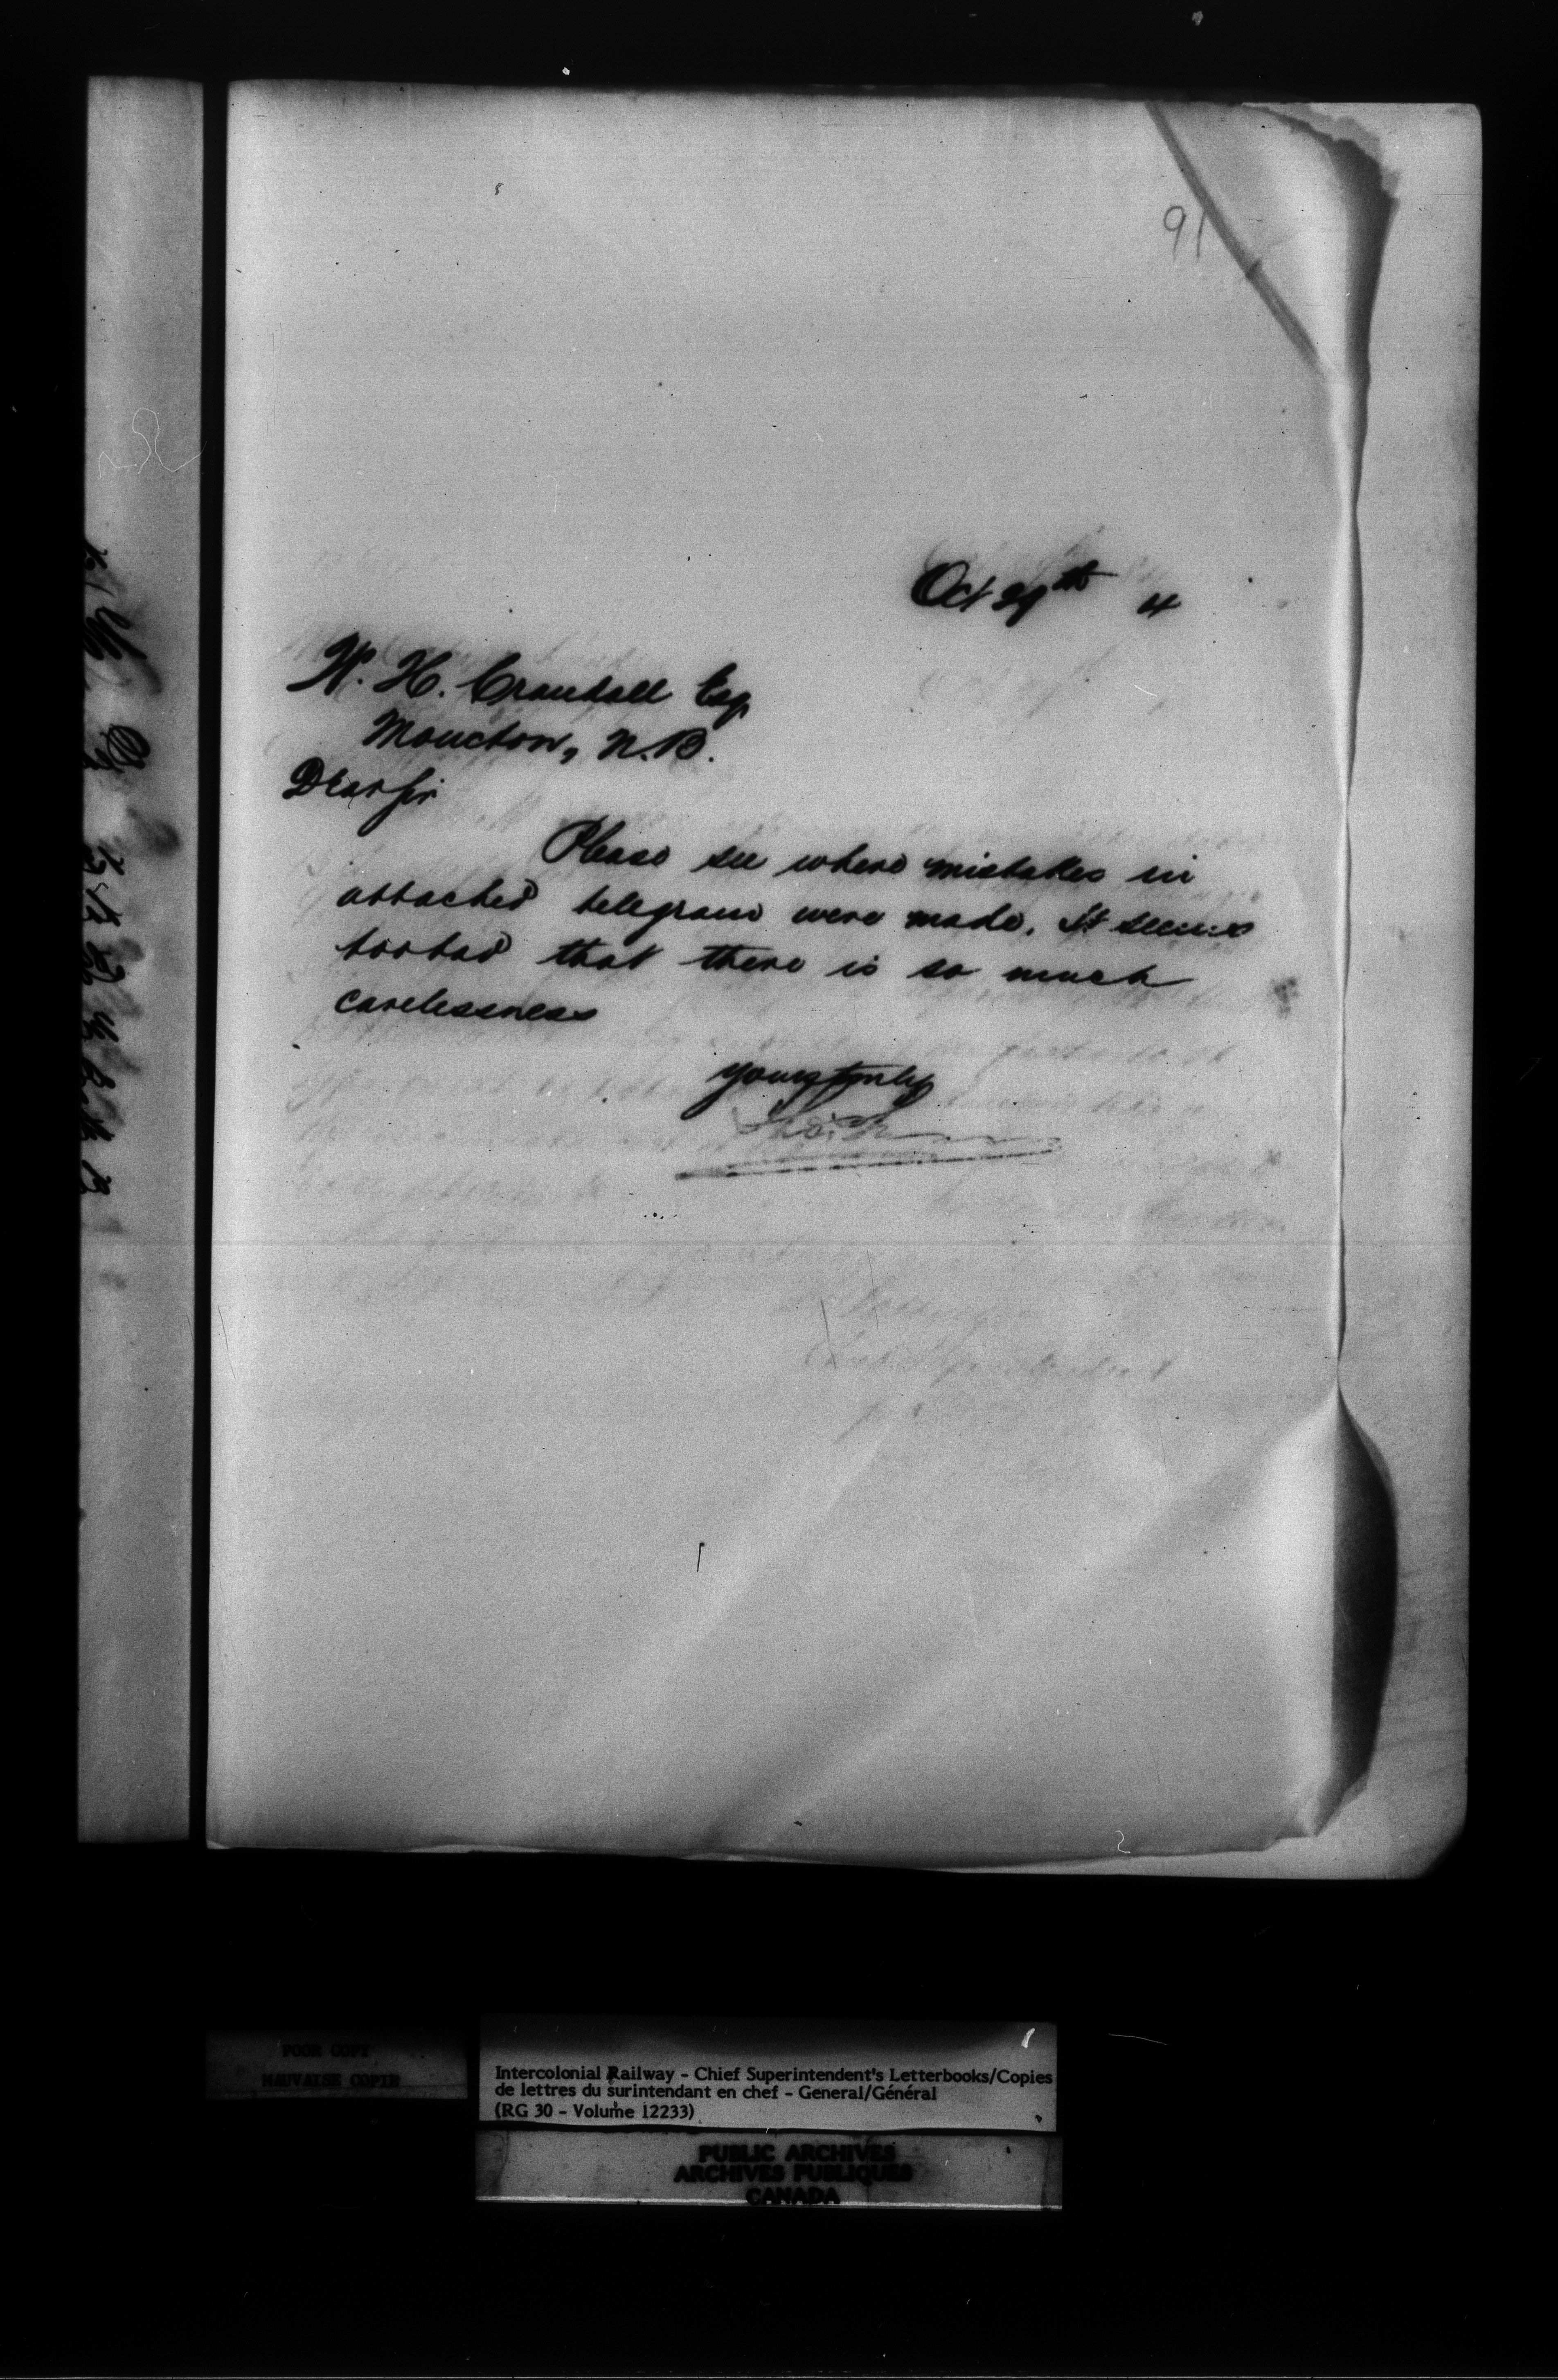 91
Oct 29th 4
W. H. Crandall Esq
Moncton, N.B.
Dear Sir
Please see where mistakes in
attached telegram were made. It seems
too bad that there is so much
carelessness
Yours truly
POOR COPY
MAUVAISE COPIE
Intercolonial Railway - Chief Superintendent's Letterbooks/Copies
de lettres du surintendant en chef - General/Général
(RG 30 - Volume 12233)
PUBLIC ARCHIVES
ARCHIVES PUBLIQUES
CANADA